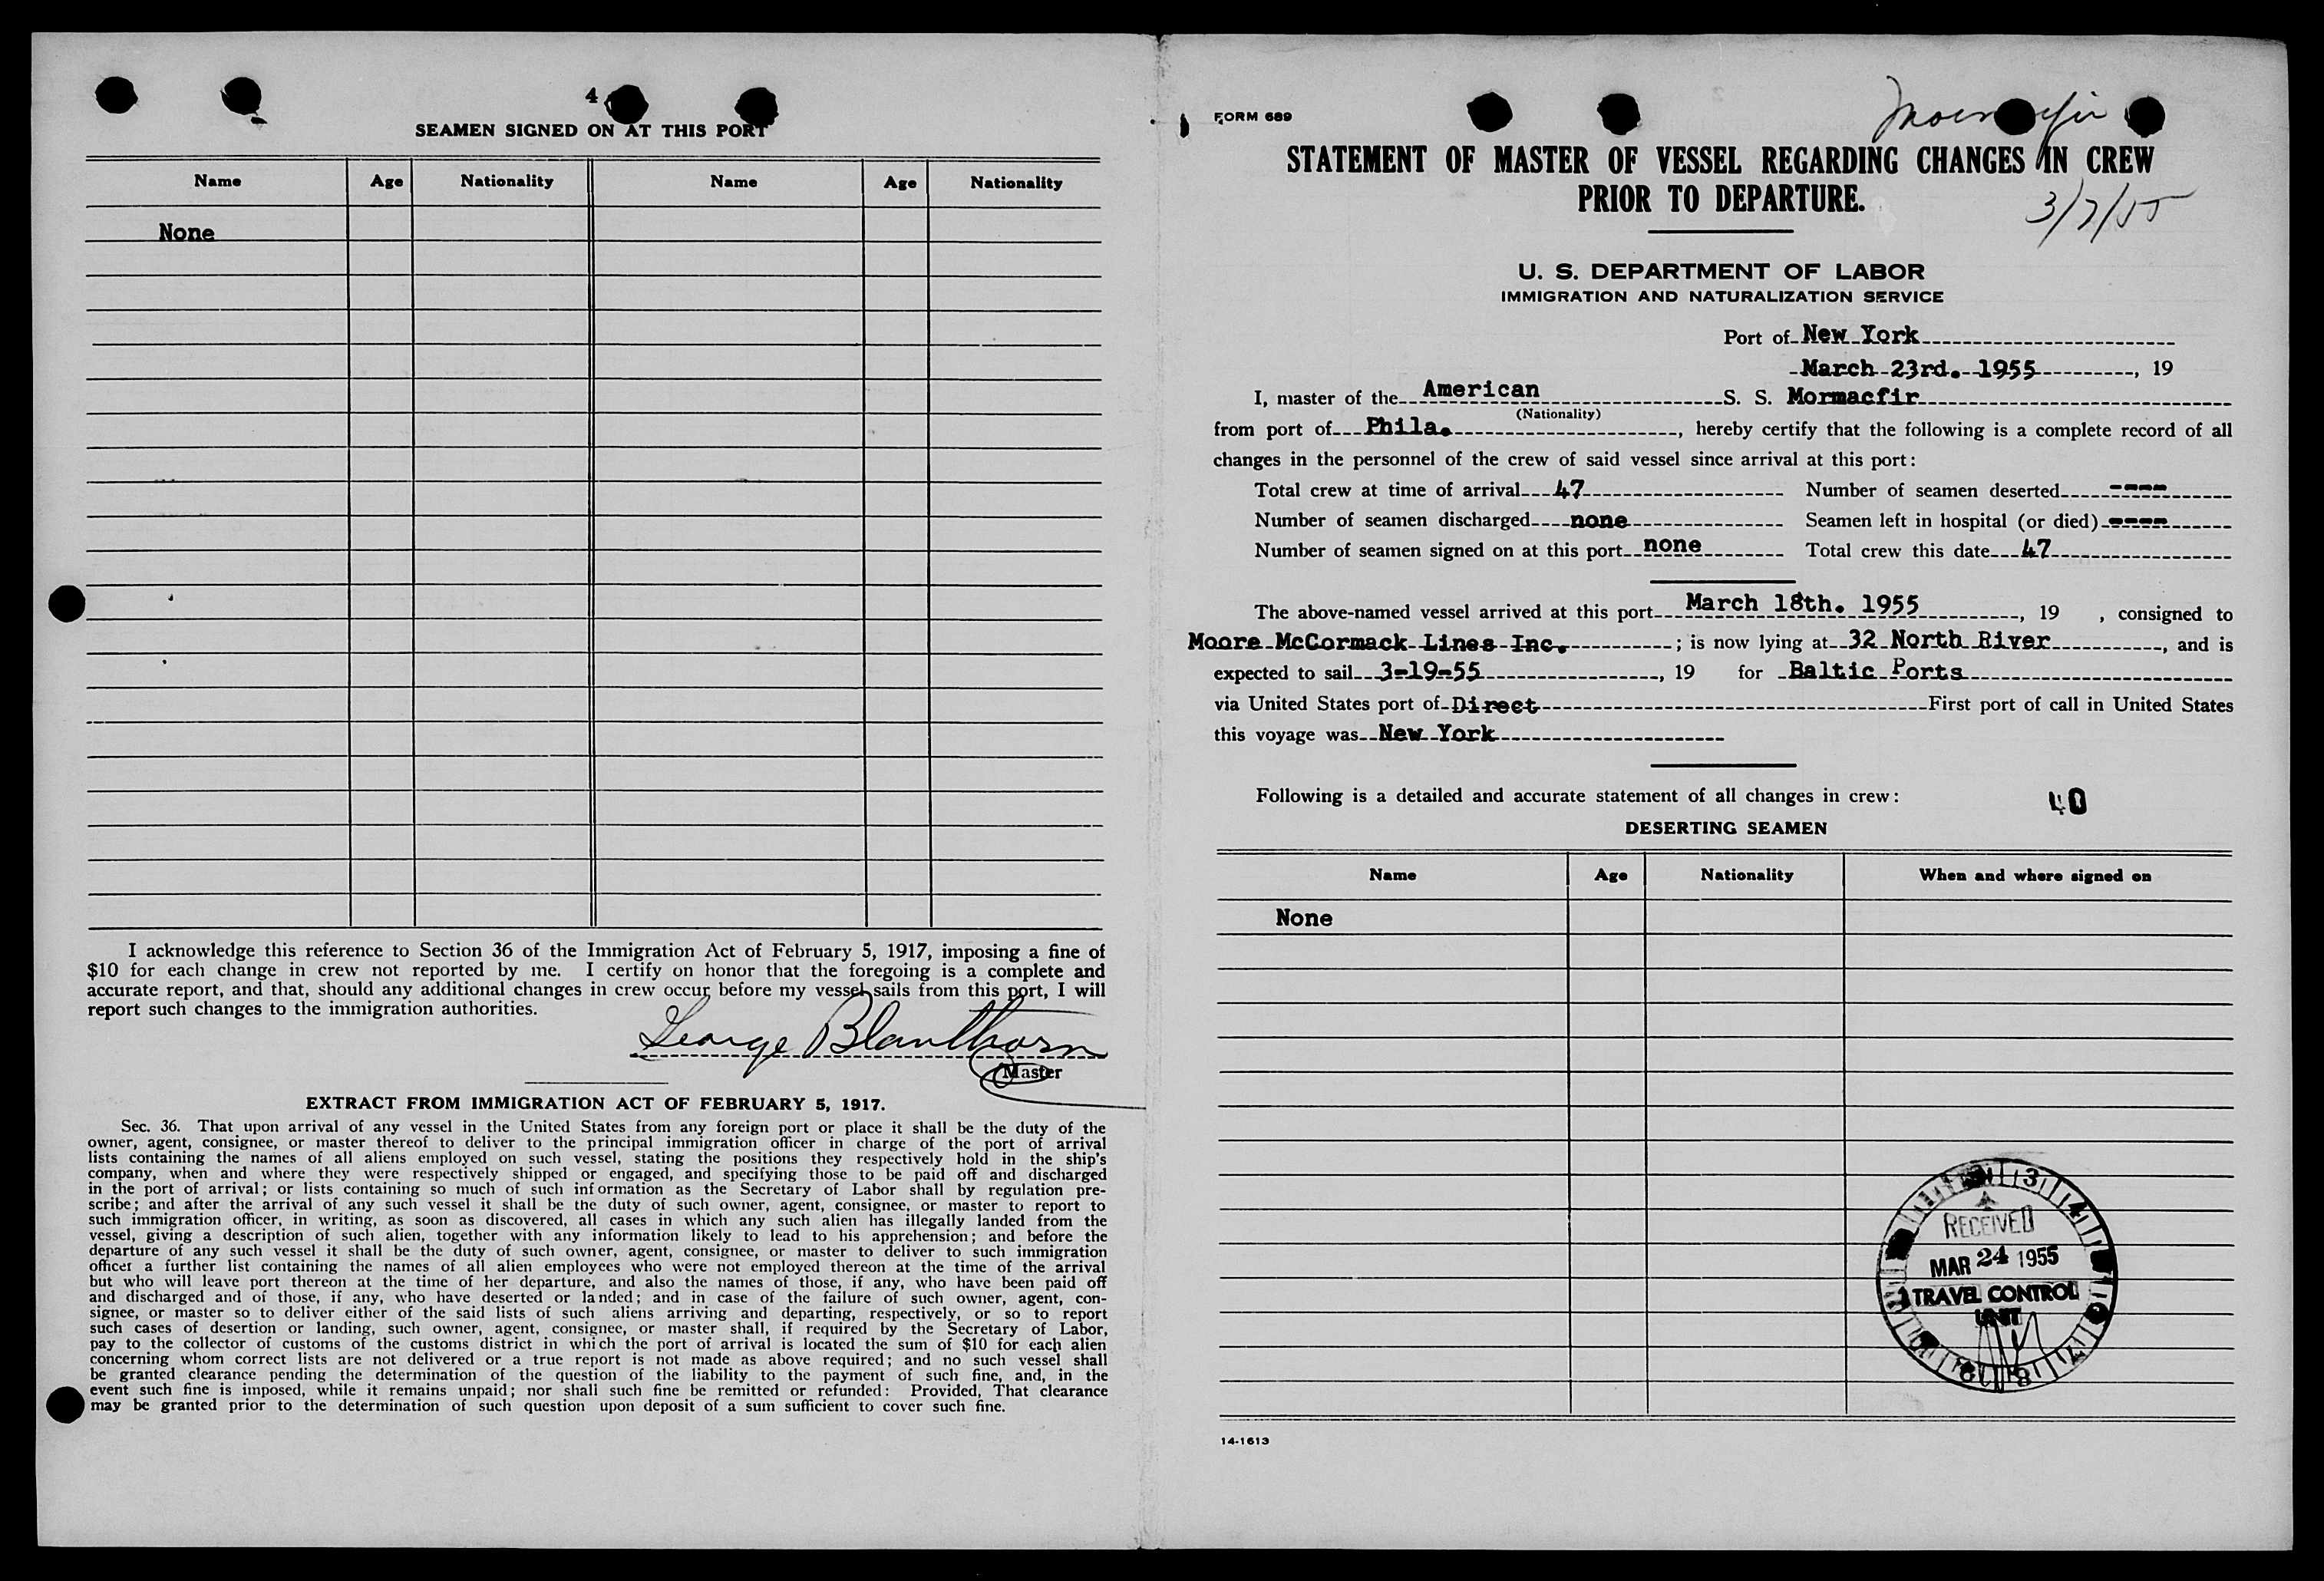 4
SEAMEN SIGNED ON AT THIS PORT
Name Age Nationality Name Age Nationality
None
I acknowledge this reference to Section 36 of the Immigration Act of February 5, 1917, imposing a fine of
$10 for each change in crew not reported by me. I certify on honor that the foregoing is a complete and
accurate report, and that, should any additional changes in crew occur before my vessel sails from this port, I will
report such changes to the immigration authorities.
George Blanthorn
Master
EXTRACT FROM IMMIGRATION ACT OF FEBRUARY 5, 1917.
Sec. 36. That upon arrival of any vessel in the United States from any foreign port or place it shall be the duty of the
owner, agent, consignee, or master thereof to deliver to the principal immigration officer in charge of the port of arrival
lists containing the names of all aliens employed on such vessel, stating the positions they respectively hold in the ship's
company, when and where they were respectively shipped or engaged, and specifying those to be paid off and discharged
in the port of arrival; or lists containing so much of such information as the Secretary of Labor shall by regulation pre-
scribe; and after the arrival of any such vessel it shall be the duty of such owner, agent, consignee, or master to report to
such immigration officer, in writing, as soon as discovered, all cases in which any such alien has illegally landed from the
vessel, giving a description of such alien, together with any information likely to lead to his apprehension; and before the
departure of any such vessel it shall be the duty of such owner, agent, consignee, or master to deliver to such immigration
officer a further list containing the names of all alien employees who were not employed thereon at the time of the arrival
but who will leave port thereon at the time of her departure, and also the names of those, if any, who have been paid off
and discharged and of those, if any, who have deserted or landed; and in case of the failure of such owner, agent, con-
signee, or master so to deliver either of the said lists of such aliens arriving and departing, respectively, or so to report
such cases of desertion or landing, such owner, agent, consignee, or master shall, if required by the Secretary of Labor,
pay to the collector of customs of the customs district in which the port of arrival is located the sum of $10 for each alien
concerning whom correct lists are not delivered or a true report is not made as above required; and no such vessel shall
be granted clearance pending the determination of the question of the liability to the payment of such fine, and, in the
event such fine is imposed, while it remains unpaid; nor shall such fine be remitted or refunded: Provided, That clearance
may be granted prior to the determination of such question upon deposit of a sum sufficient to cover such fine.
FORM 689
STATEMENT OF MASTER OF VESSEL REGARDING CHANGES IN CREW
PRIOR TO DEPARTURE.
U. S. DEPARTMENT OF LABOR
IMMIGRATION AND NATURALIZATION SERVICE
Port of New York
March 23rd. 1955, 19
I, master of the American S. S. Mormacfir
(Nationality)
from port of Phila., hereby certify that the following is a complete record of all
changes in the personnel of the crew of said vessel since arrival at this port:
Total crew at time of arrival 47 Number of seamen deserted ----
Number of seamen discharged none Seamen left in hospital (or died) ----
Number of seamen signed on at this port none Total crew this date 47
The above-named vessel arrived at this port March 18th. 1955, 19 , consigned to
Moore McCormack Lines Inc.; is now lying at 32 North River, and is
expected to sail 3-19-55, 19 for Baltic Ports
via United States port of Direct First port of call in United States
this voyage was New York
Following is a detailed and accurate statement of all changes in crew:
40
DESERTING SEAMEN
Name Age Nationality When and where signed on
None
RECEIVED
MAR 24 1955
TRAVEL CONTROL
UNIT
14-1613